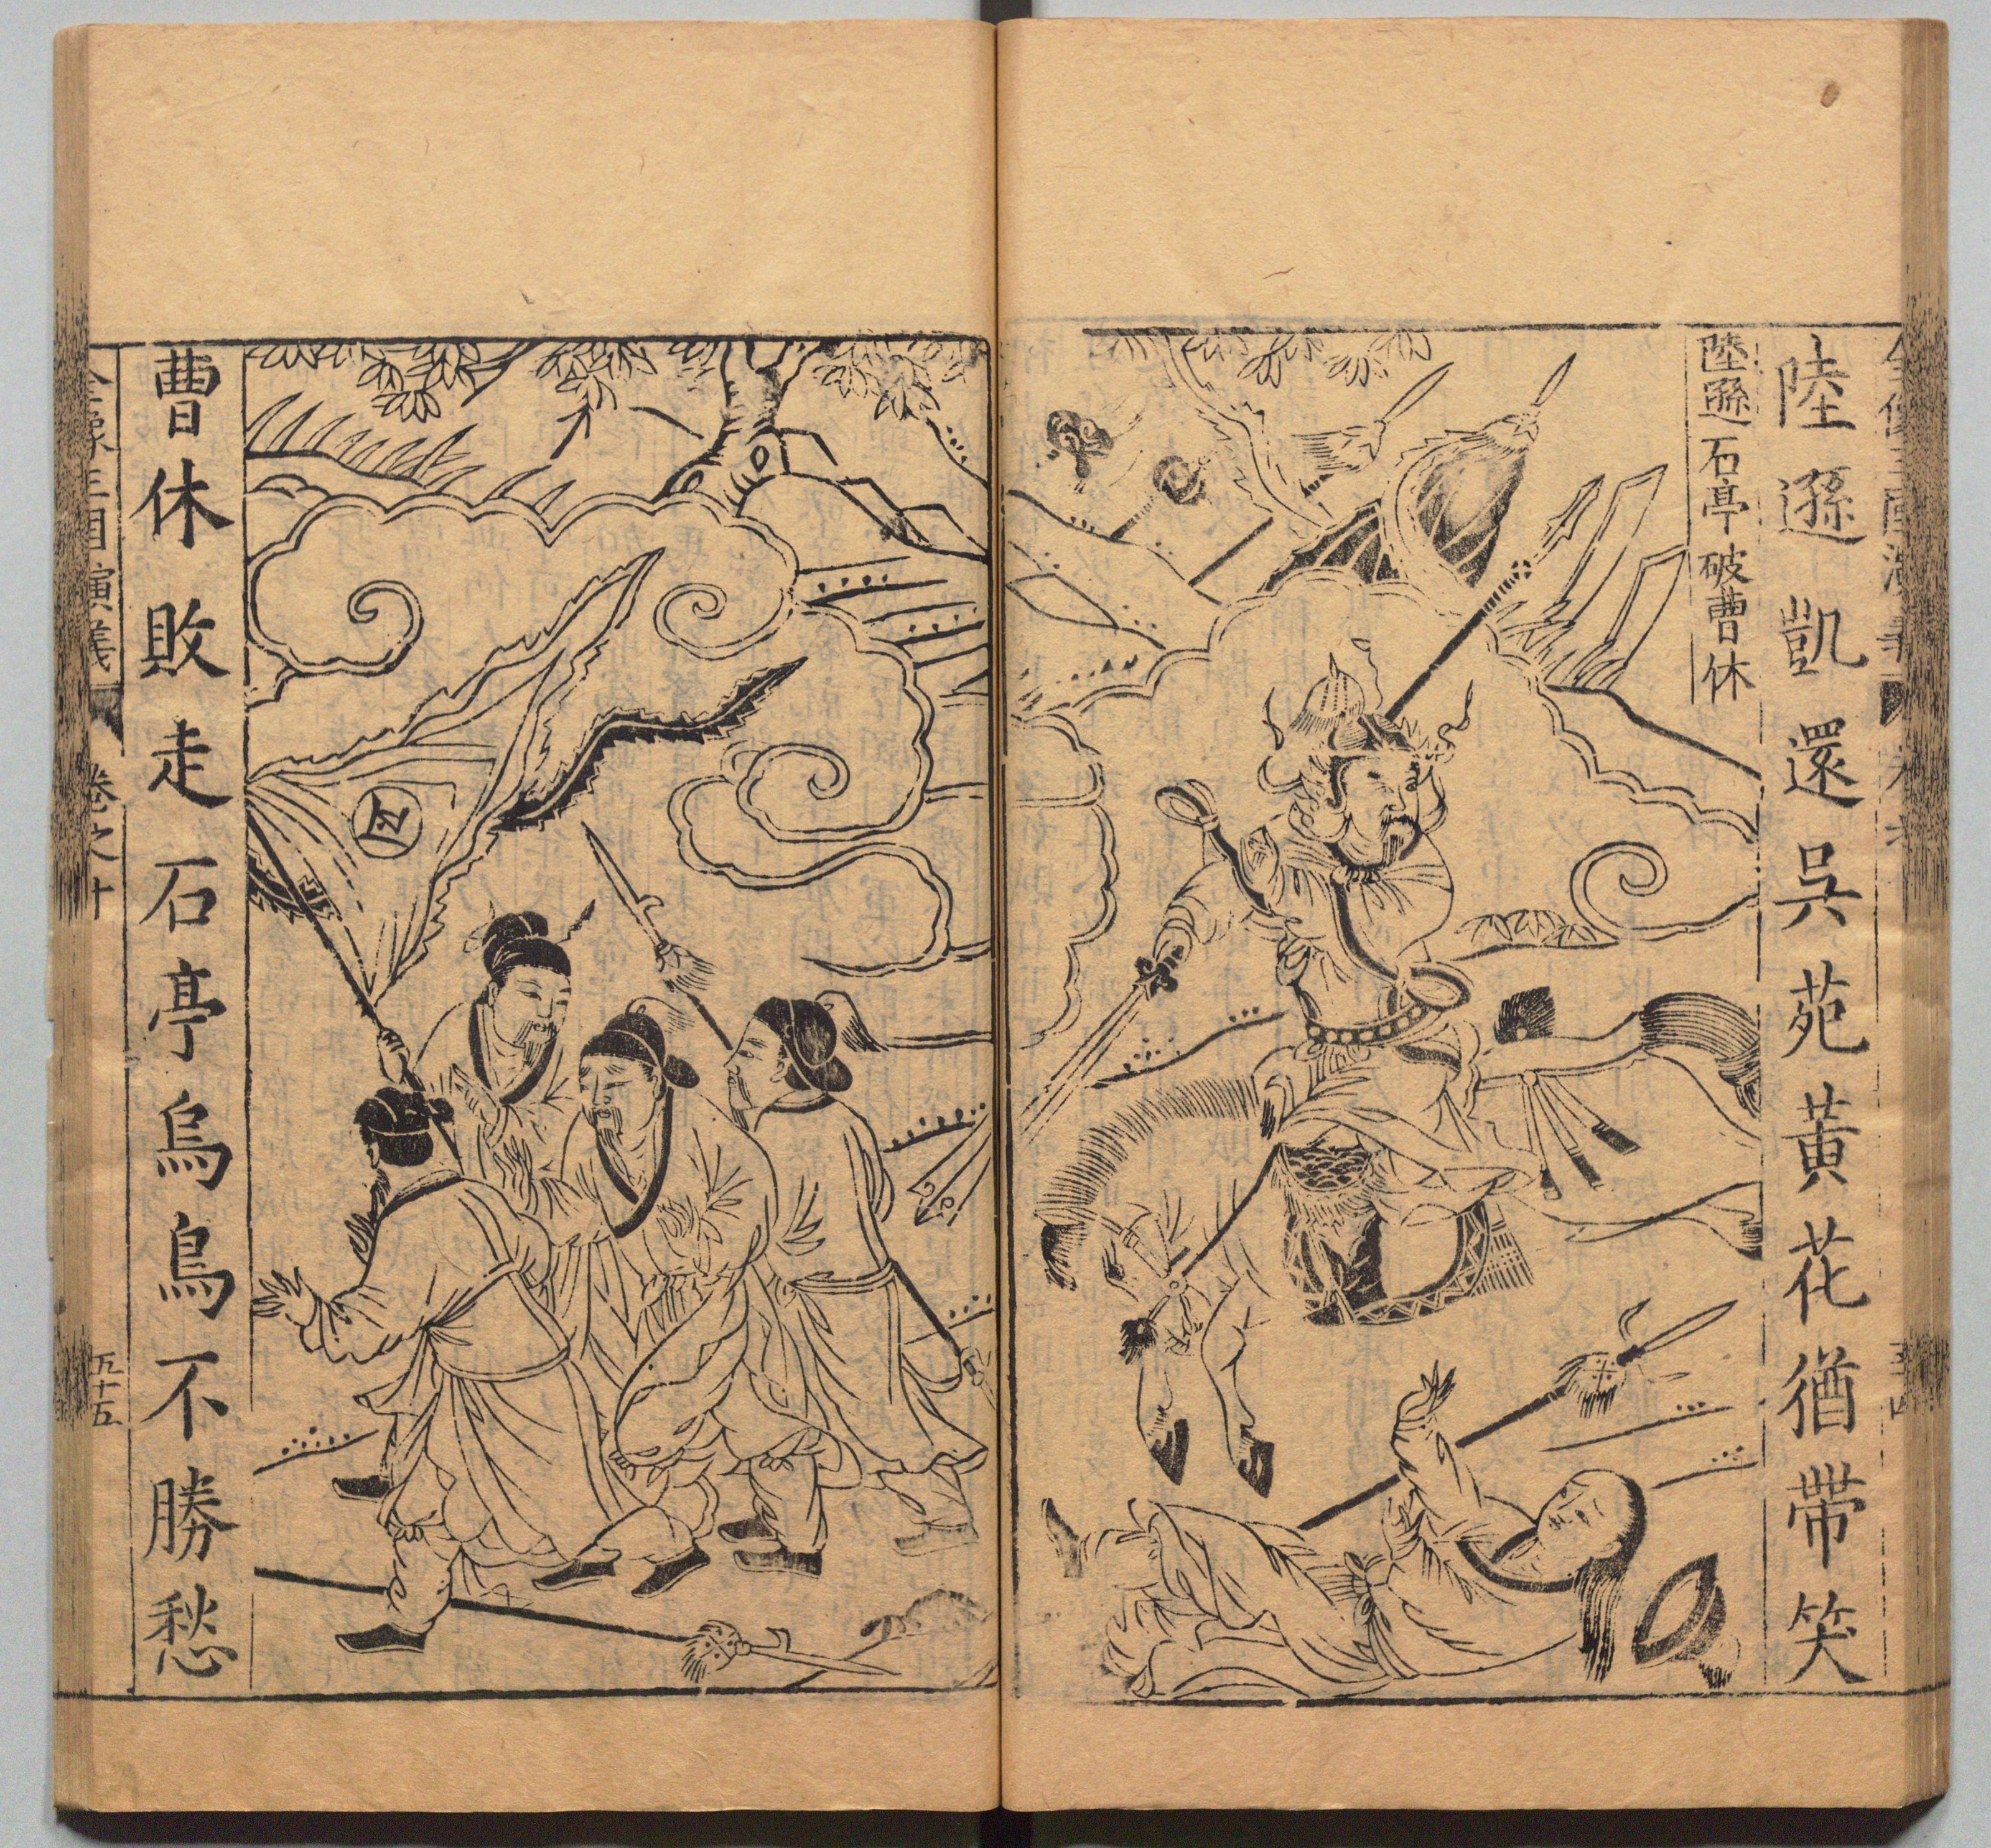 陸遜凱還吳苑黃花猶帶笑
陸遜石亭破曹休
曹休敗走石亭烏鳥不勝愁
像三国演義 卷之十 五十五